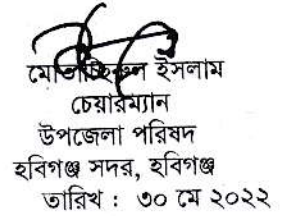 মোতাচ্ছিরুল ইসলাম
চেয়ারম্যান
উপজেলা পরিষদ
হবিগঞ্জ সদর, হবিগঞ্জ
তারিখ : ৩০ মে ২০২২